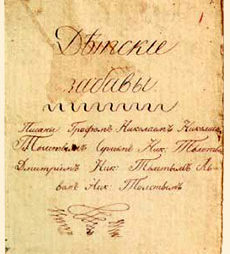 Дѣтскіе
забавы
Писаны Графомъ Николаемъ Николае
Толстымъ Сергѣемъ Ник: Толсты
Дмитріемъ Ник: Толстымъ Ль
вомъ Ник: Толстымъ